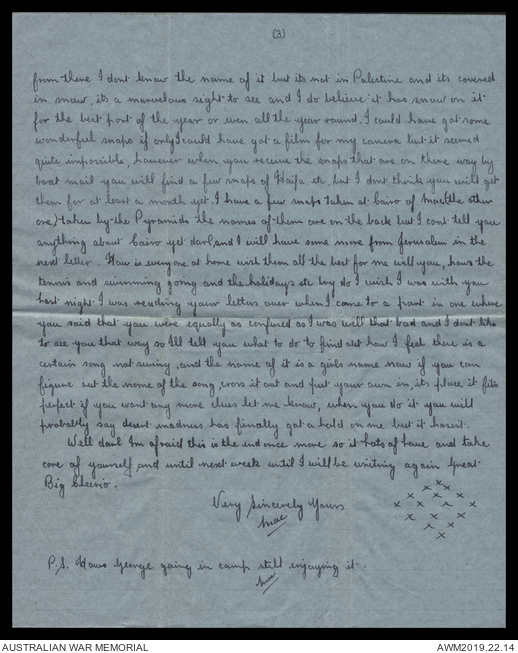 (3)
from there I dont know the name of it but its not in Palestine and its covered
in snow, its a marvelous sight to see and I do believe it has snow on it
for the best part of the year or even all the year round. I could have got some
wonderful snaps if only I could have got a film for my camera but it seemed
quite impossible, however when you receive the snaps that are on there way by
boat mail you will find a few snaps of Haifa etc, but I dont think you will get
them for at least a month yet. I have a few snaps taken at Cairo of Mac (the other
one) taken by the Pyramids the names of them are on the back but I cont tell you
anything about Cairo yet darl, and I will have some more from Jerusalem in the
next letter. How is everyone at home wish them all the best for me will you, hows the
tennis and swimming going and the holidays etc boy do I wish I was with you
last night I was reading your letters over when I came to a part in one where
you said that you were equally as confused as I was well that bad and I dont like
to see you that way so Ill tell you what to do to find out how I feel there is a
certain song not swing, and the name of it is a girls name now if you can
figure out the name of the song, cross it out and put your own in, its place it fits
perfect if you want any more clues let me know, when you do it you will
probably say desert madness has finally got a hold on me but it hasnt.
Well darl Im afraid this is the end once more so it lots of love and take
care of yourself, and until next week until I will be writing again Great
Big Cheerio.
Very Sincerely Yours
Mac
x x x x x x x x x x x x x x x x
P.S. Hows George going in camp still enjoying it.
Mac
AUSTRALIAN WAR MEMORIAL
AWM2019.22.14